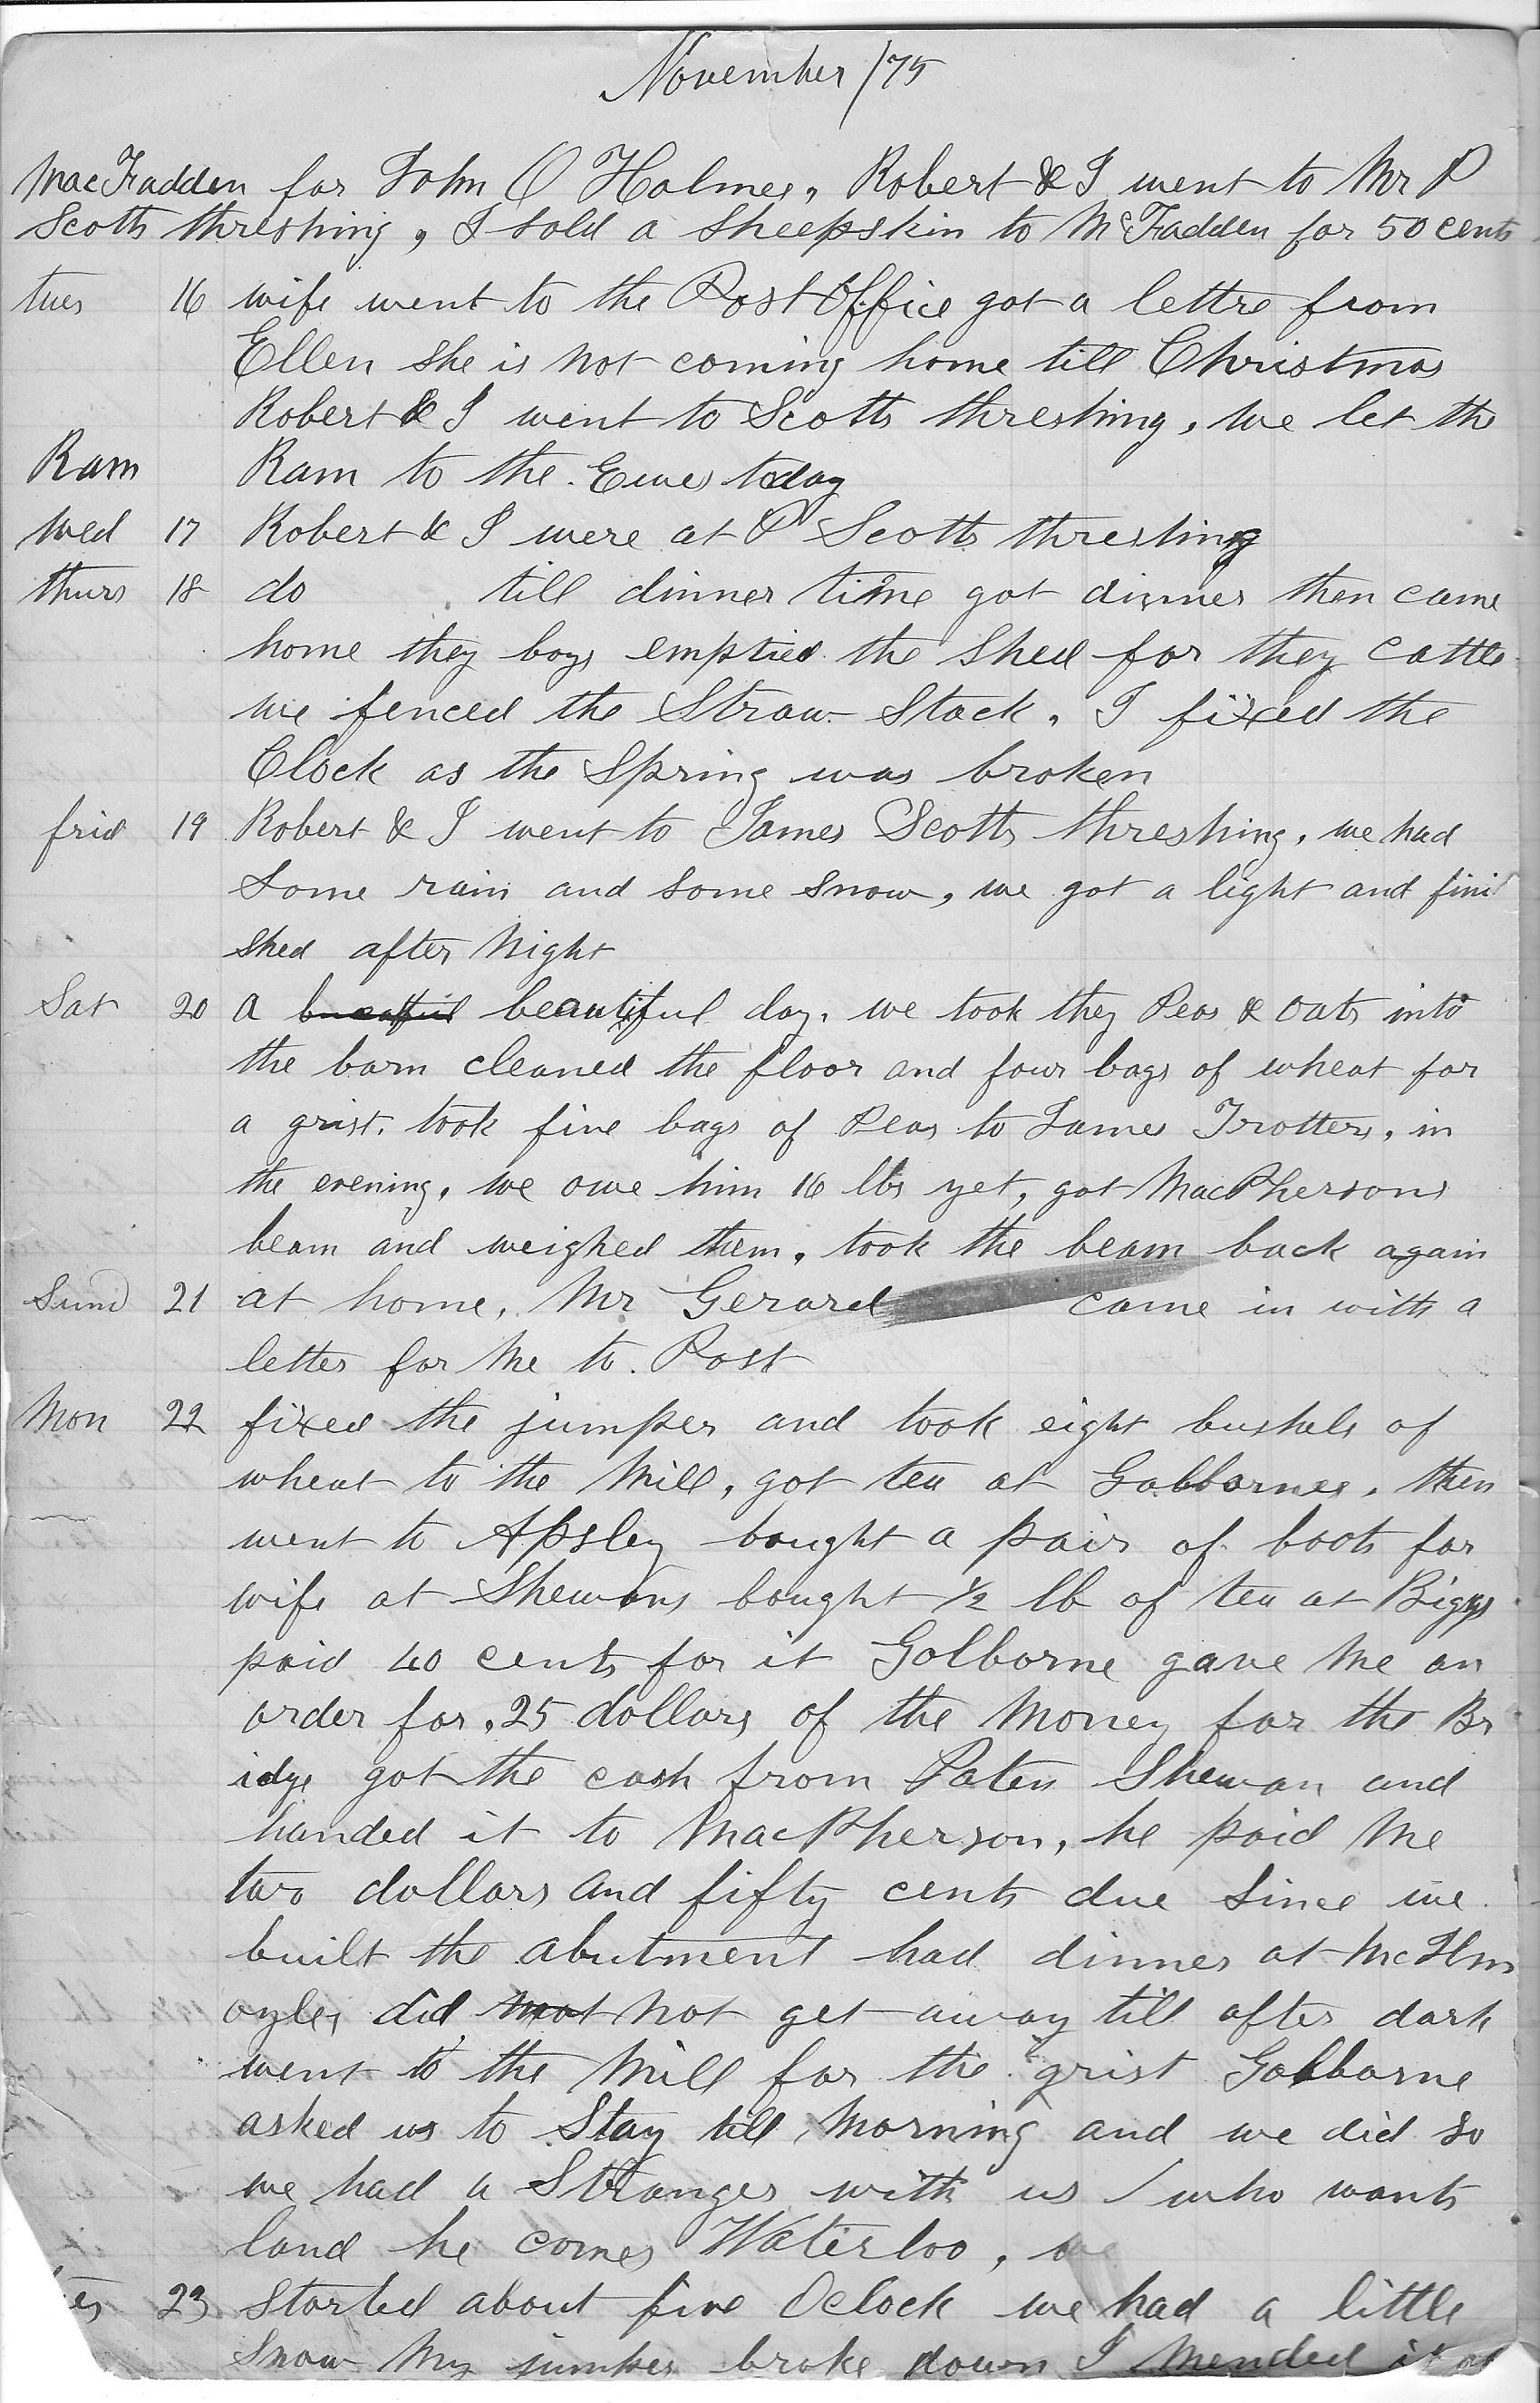 November /75
MacFadden for John O Holmes, Robert & I went to Mr P
Scotts threshing, I sold a Sheepskin to McFadden for 50 cents
tues 16 wife went to the Post Office got a lettre from
Ellen She is not coming home till Christmas
Robert & I went to Scotts threshing, we let the
Ram Ram to the Ewes today
Wed 17 Robert & I were at P Scotts threshing
thurs 18 do till dinner time got dinner then came
home they boys emptied the Shed for they cattle
we fenced the Straw Stack, I fixed the
Clock as the Spring was broken
frid 19 Robert & I went to James Scotts threshing, we had
Some rain and some snow, we got a light and fini
shed after Night
Sat 20 a beautiful day, we took they Peas & Oats into
the barn cleaned the floor and four bags of wheat for
a grist, took five bags of Peas to James Trotters, in
the evening, we owe him 16 lbs yet, got MacPhersons
beam and weighed them, took the beam back again
Sund 21 at home, Mr Gerard came in with a
letter for Me to Post
Mon 22 fixed the jumper and took eight bushels of
wheat to the Mill, got tea at Golbornes, then
went to Apsley bought a pair of boots for
wife at Shewans bought ½ lb of tea at Biggs
paid 40 cents for it Golborne gave Me an
order for 25 dollars of the Money for the Br
idge got the cash from Shewan and
handed it to MacPherson, he paid Me
two dollars and fifty cents due Since we
built the abutment had dinner at McIlm
oyles did not Not get away till after dark
went to the Mill for the grist Golborne
asked us to Stay till Morning and we did So
we had a Stranger with us / who wants
land he comes Waterloo, we
23 Started about five Oclock we had a little
Snow My jumper broke down I Mended it at